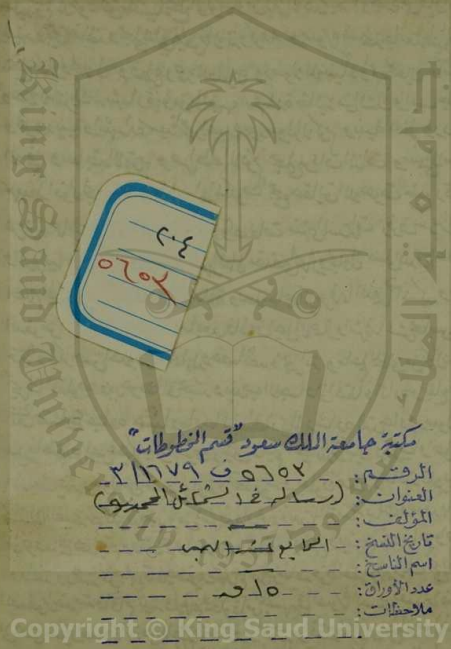 King Saud University
جامعة الملك
٢٠٤
٥٦٥٣
مكتبة جامعة الملك سعود "قسم المخطوطات"
الرقم: ٥٦٥٣ ف ٣/١٦٧٩
العنوان: (رسالة في الشمائل المحمدية)
المؤلف:
تاريخ النسخ: الرابع عشر الهجري
اسم الناسخ:
عدد الأوراق: ١٥ ق
ملاحظات:
Copyright © King Saud University